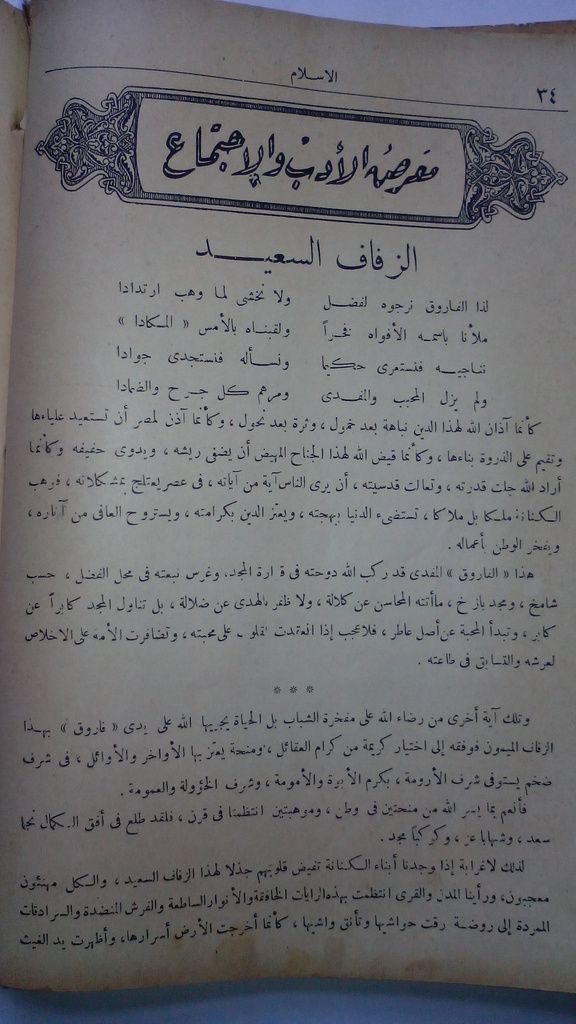 الاسلام
٣٤
معرض الأدب والاجتماع
الزفاف السعيد
لذا الفاروق نرجوه لفضل ولا نخشى لما وهب ارتدادا
ملأنا باسمه الأفواه فخراً ولقبناه بالأمس « المكادا »
نناجيه فنستمرى حكيما ونسأله فنستجدى جوادا
ولم يزل المحبب والمفدى ومرهم كل جرح والضمادا
كأنما آذان الله لهذا الدين نباهة بعد خمول ، وثرة بعد نحول ، وكأنما آذن لمصر أن تستعيد علياءها
وتقيم على الذروة بناءها ، وكأنما قيض الله لهذا الجناح المهيض أن يضفى ريشه ، ويدوى حفيفه وكأنما
أراد الله جلت قدرته ، وتعالت قدسيته ، أن يرى الناس آية من آياته ، فى عصر يعتلج بمشكلاته ، فوهب
الكنانة ملكا بل ملاكا ، تستضىء الدنيا ببهجته ، ويعتز الدين بكرامته ، ويستروح العافى من آثاره ،
ويفخر الوطن بأعماله .
هذا « الفاروق » المفدى قد ركب الله دوحته فى قرارة المجد، وغرس نبعته فى محل الفضل ، حسب
شامخ ، ومجد باذخ ، ما أتته المحاسن عن كلالة ، ولا ظفر بالهدى عن ضلالة ، بل تناول المجد كابراً عن
كابر ، وتبدأ المحبة عن أصل عاطر ، فلا عجب إذا انعقدت القلوب على محبته ، وتضافرت الأمة على الاخلاص
لعرشه والتسابق فى طاعته .
* * *
وتلك آية أخرى من رضاء الله على مفخرة الشباب بل الحياة يجيبها الله على يدى « فاروق » بهذا
الزفاف الميمون فوفقه إلى اختيار كريمة من كرام العقائل ، ومنحة يعتز بها الأواخر والأوائل ، فى شرف
ضخم يستوفى شرف الأرومة ، بكرم الأبوة والأمومة ، وشرف الخؤولة والعمومة .
فأنعم بما يسر الله من منحتين فى وطن ، وموهبتين انتظمتا فى قرن ، فلقد طلع فى أفق الكمال نجما
سعد ، وشهابا عز ، وكوكبا مجد .
لذلك لا غرابة إذا وجدنا أبناء الكنانة تفيض قلوبهم جذلا لهذا الزفاف السعيد ، والكل مهنئون
معجبون، ورأينا المدن والقرى انتظمت بهذه الرايات الخافقة والأنوار الساطعة والفرش المنضدة والسرادقات
الممردة إلى روضة رقت حواشيها وتأنق واشيها ، كأنما أخرجت الأرض أسرارها، وأظهرت يد الغيث